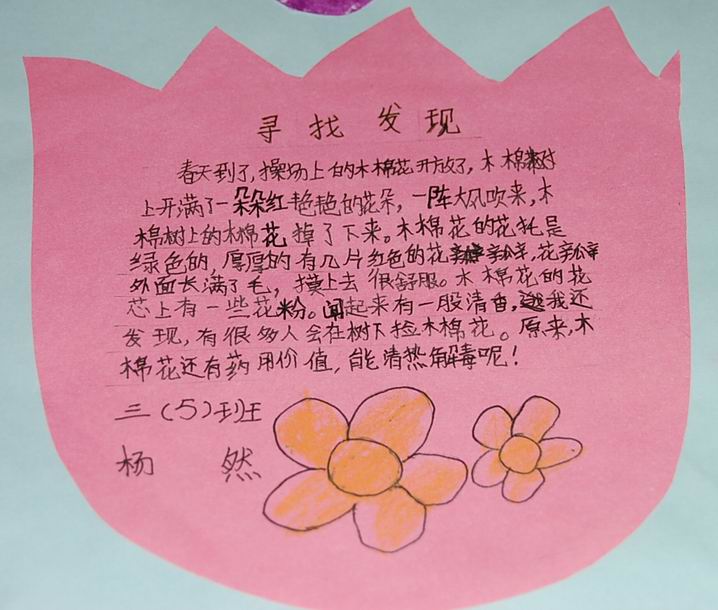 寻找发现
春天到了，操场上的木棉花开放了，木棉树
上开满了一朵朵红艳艳的花朵，一阵大风吹来，木
棉树上的木棉花掉了下来。木棉花的花托是
绿色的，厚厚的有几片红色的花瓣，花瓣
外面长满了毛，摸上去很舒服。木棉花的花
芯上有一些花粉。闻起来有一股清香，我还
发现，有很多人会在树下捡木棉花。原来，木
棉花还有药用价值，能清热解毒呢！
三（5）班
杨然